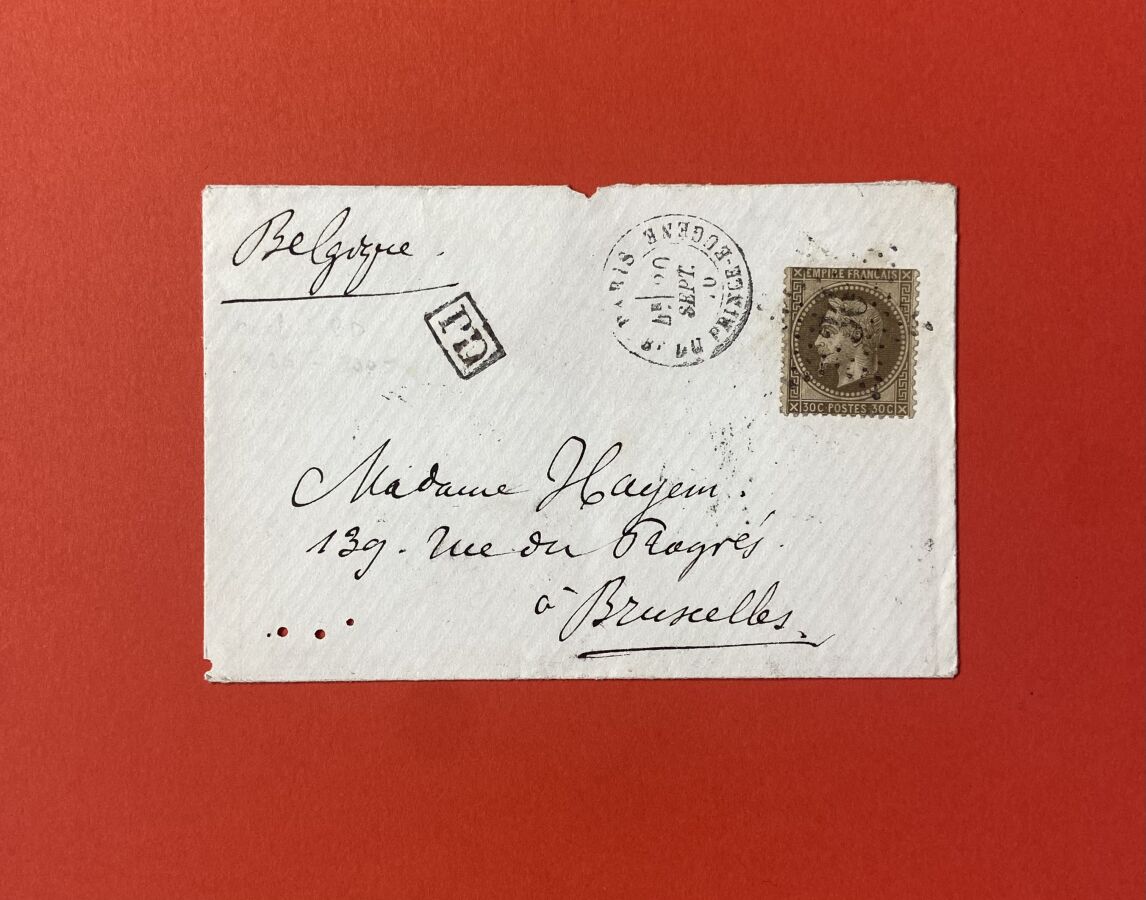 Belgique.
PARIS
Bd DU PRINCE-EUGENE
20
SEPT.
70
PD
EMPIRE FRANÇAIS
30C POSTES 30C
Madame Hayem.
139. rue du Progrés.
à Bruxelles.